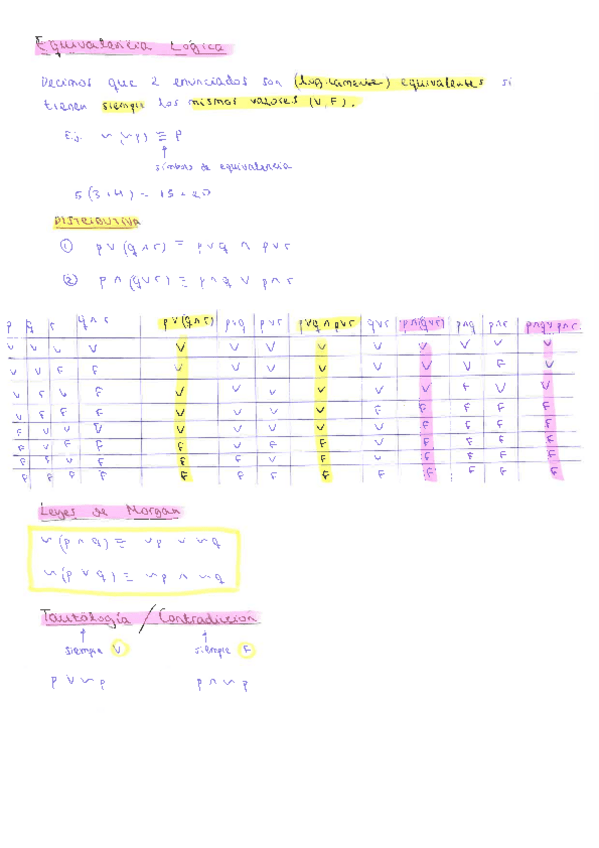 Equivalencia Lógica
Decimos que 2 enunciados son (lógicamente) equivalentes si
tienen siempre los mismos valores (V, F).
Ej. ~(~p) ≡ p
↑
símbolo de equivalencia
5(3+4) = 15+20
DISTRIBUTIVA
① p∨(q∧r) ≡ p∨q ∧ p∨r
② p∧(q∨r) ≡ p∧q ∨ p∧r
p q r q∧r p∨(q∧r) p∨q p∨r p∨q ∧ p∨r q∨r p∧(q∨r) p∧q p∧r p∧q∨ p∧r
V V V V V V V V V V V V V
V V F F V V V V V V V F V
V F V F V V V V V V F V V
V F F F V V V V F F F F F
F V V V V V V V V F F F F
F V F F F V F F V F F F F
F F V F F F V F V F F F F
F F F F F F F F F F F F F
Leyes de Morgan
~(p∧q) ≡ ~p ∨ ~q
~(p∨q) ≡ ~p ∧ ~q
Tautología / Contradicción
↑ ↑
siempre V siempre F
p ∨ ~p p ∧ ~p